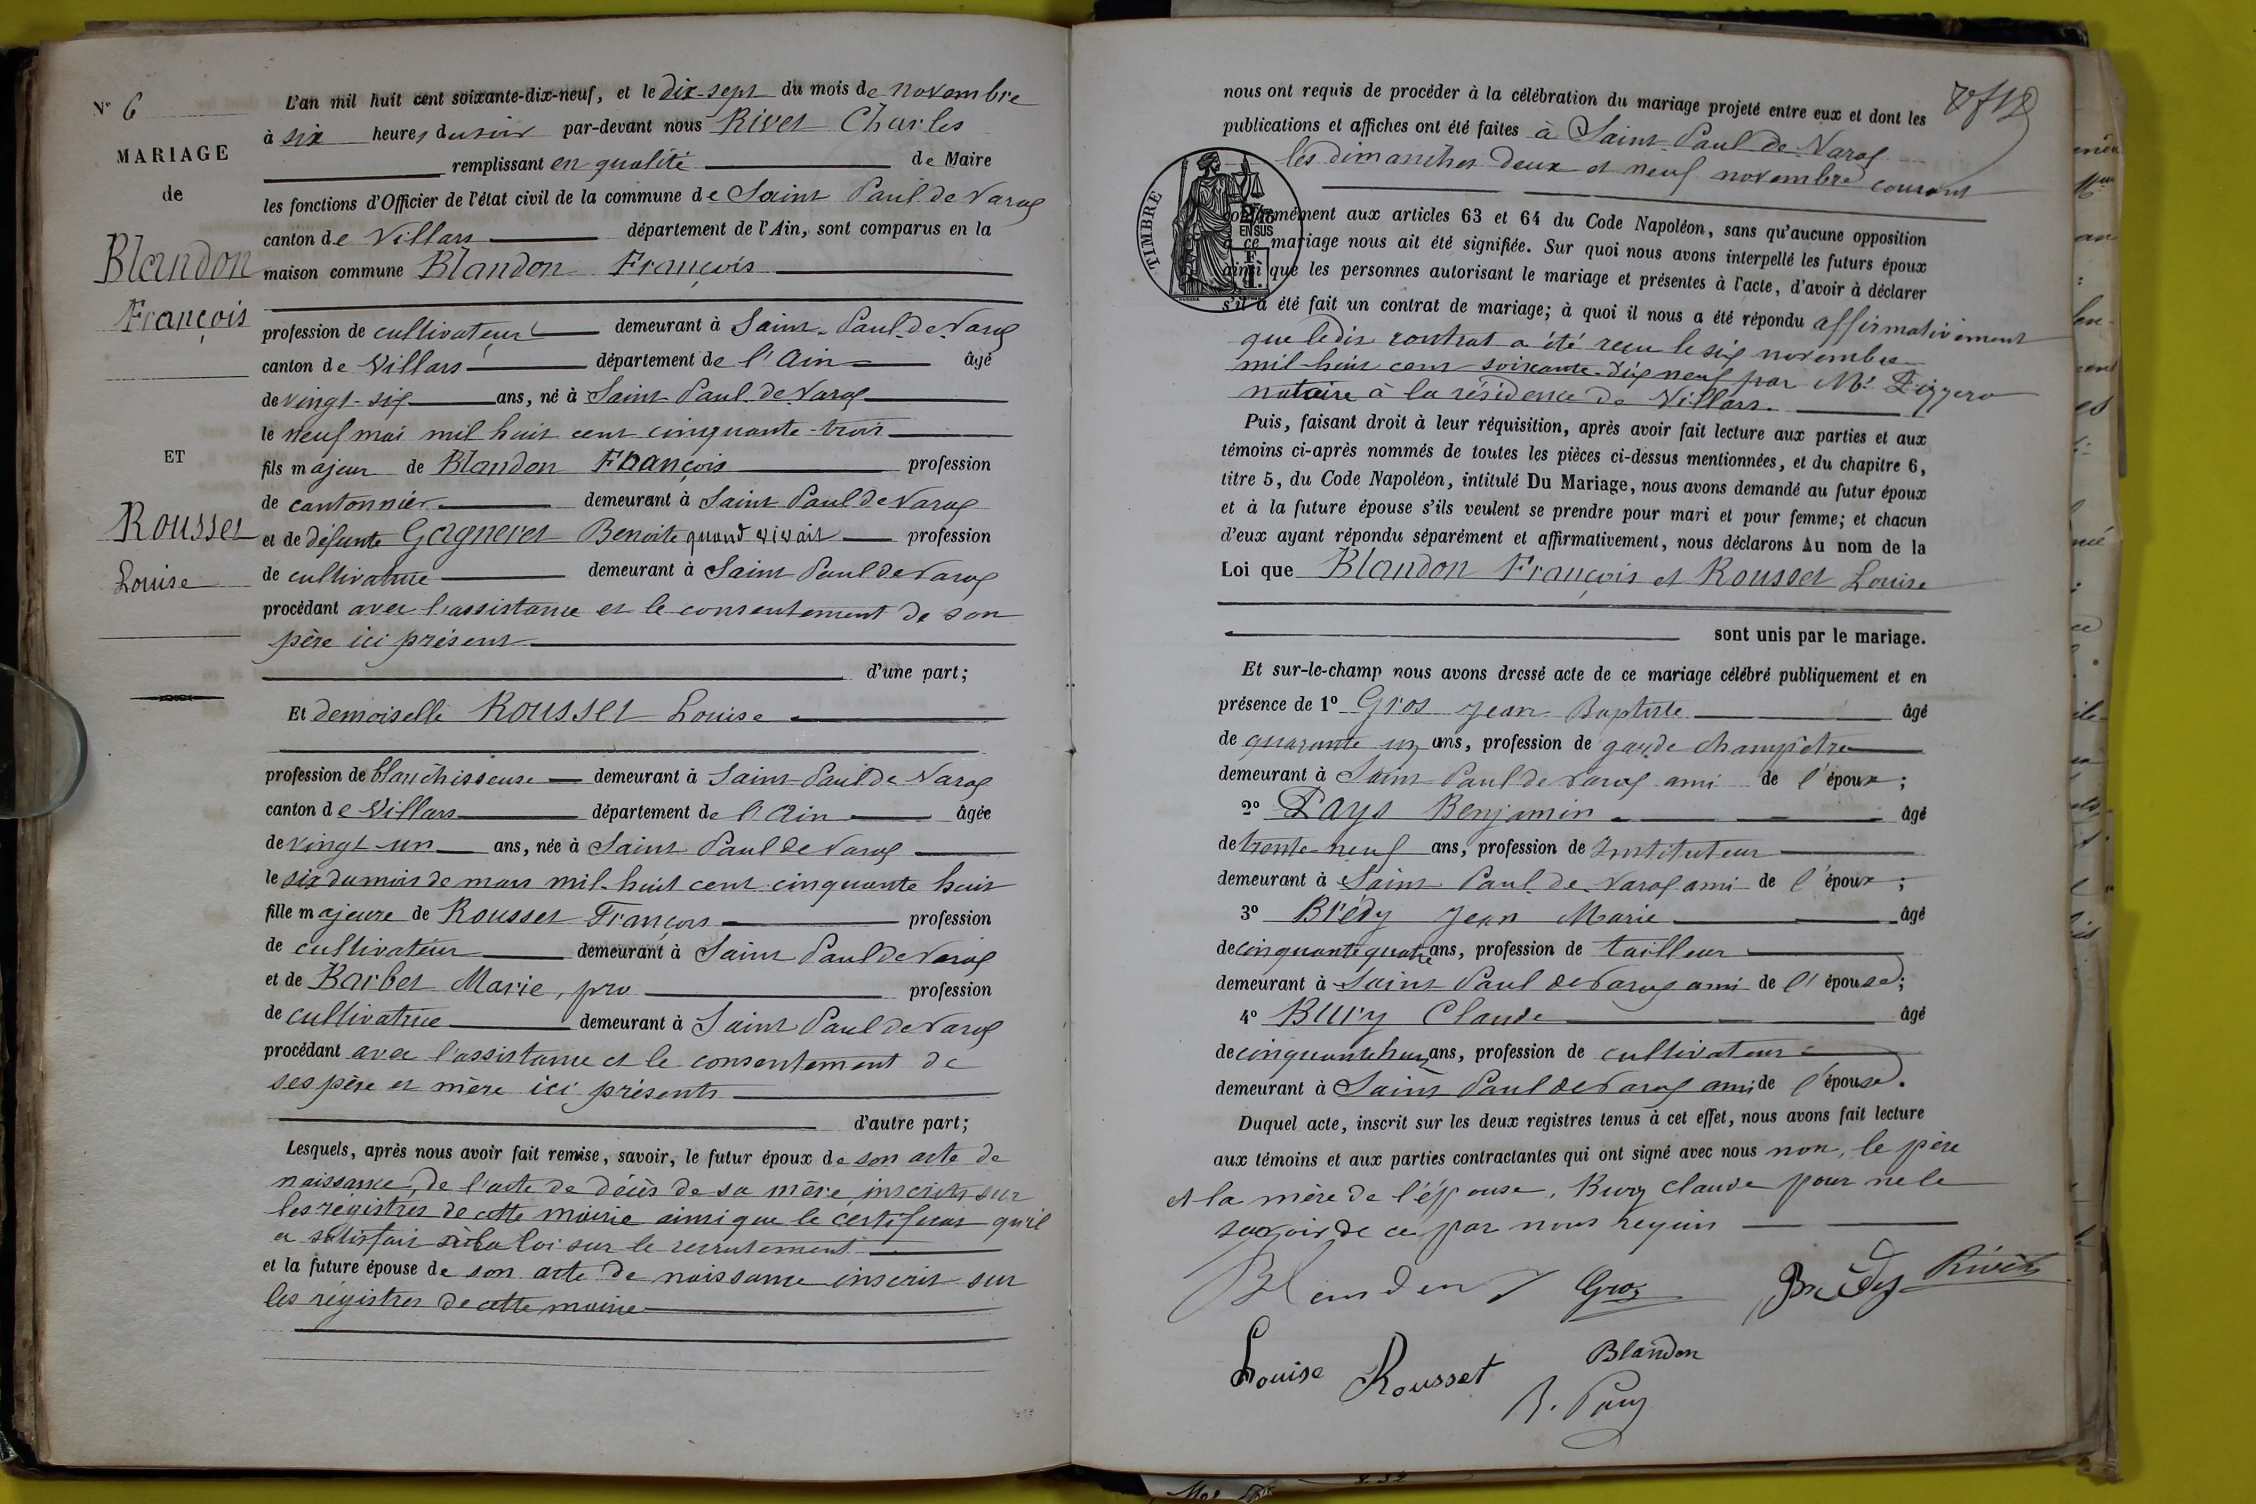 N° 6
MARIAGE
de
Blandon
François
ET
Rousset
Louise
L'an mil huit cent soixante-dix-neuf, et le dix-sept du mois de novembre
à six heures du soir par-devant nous Rivet Charles
remplissant en qualité de Maire
les fonctions d'Officier de l'état civil de la commune de Saint Paul de Varax
canton de Villars département de l'Ain, sont comparus en la
maison commune Blandon François
profession de cultivateur demeurant à Saint-Paul-de-Varax
canton de Villars département de l'Ain âgé
de vingt-six ans, né à Saint Paul de Varax
le neuf mai mil huit cent cinquante-trois
fils majeur de Blandon François profession
de cantonnier demeurant à Saint Paul de Varax
et de défunte Gagneret Benoite quand vivait profession
de cultivatrice demeurant à Saint Paul de Varax
procédant avec l'assistance et le consentement de son
père ici présent
d'une part;
Et demoiselle Rousset Louise
profession de blanchisseuse demeurant à Saint-Paul de Varax
canton de Villars département de l'Ain âgée
de vingt-un ans, née à Saint Paul de Varax
le six du mois de mars mil-huit cent cinquante huit
fille majeure de Rousset François profession
de cultivateur demeurant à Saint Paul de Varax
et de Barbet Marie, pro profession
de cultivatrice demeurant à Saint Paul de Varax
procédant avec l'assistance et le consentement de
ses père et mère ici présents
d'autre part;
Lesquels, après nous avoir fait remise, savoir, le futur époux de son acte de
naissance, de l'acte de décès de sa mère, inscrits sur
les régistres de cette mairie ainsi que le certificat qu'il
a satisfait à la loi sur le recrutement
et la future épouse de son acte de naissance inscrit sur
les régistres de cette mairie
nous ont requis de procéder à la célébration du mariage projeté entre eux et dont les
publications et affiches ont été faites à Saint-Paul de Varax
les dimanches deux et neuf novembre courant
TIMBRE
2/10
EN SUS
conformément aux articles 63 et 64 du Code Napoléon, sans qu'aucune opposition
à ce mariage nous ait été signifiée. Sur quoi nous avons interpellé les futurs époux
ainsi que les personnes autorisant le mariage et présentes à l'acte, d'avoir à déclarer
s'il a été fait un contrat de mariage; à quoi il nous a été répondu affirmativement
que ledit contrat a été reçu le six novembre
mil huit cent soixante-dix neuf par Mr
notaire à la résidence de Villars.
Puis, faisant droit à leur réquisition, après avoir fait lecture aux parties et aux
témoins ci-après nommés de toutes les pièces ci-dessus mentionnées, et du chapitre 6,
titre 5, du Code Napoléon, intitulé Du Mariage, nous avons demandé au futur époux
et à la future épouse s'ils veulent se prendre pour mari et pour femme; et chacun
d'eux ayant répondu séparément et affirmativement, nous déclarons Au nom de la
Loi que Blandon François et Rousset Louise
sont unis par le mariage.
Et sur-le-champ nous avons dressé acte de ce mariage célébré publiquement et en
présence de 1° Gros Jean Baptiste âgé
de quarante un ans, profession de garde champêtre
demeurant à Saint Paul de Varax ami de l'époux;
2° Pays Benjamin âgé
de trente-neuf ans, profession de Instituteur
demeurant à Saint Paul de Varax ami de l'époux;
3° Brédy Jean Marie âgé
de cinquante quatre ans, profession de tailleur
demeurant à Saint Paul de Varax ami de l'épouse;
4° Bury Claude âgé
de cinquante huit ans, profession de cultivateur
demeurant à Saint Paul de Varax ami de l'épouse.
Duquel acte, inscrit sur les deux registres tenus à cet effet, nous avons fait lecture
aux témoins et aux parties contractantes qui ont signé avec nous non, le père
et la mère de l'épouse, Bury claude pour ne le
savoir de ce par nous requis
Blandon f Gros Brédy Rivet
Louise Rousset Blandon
B. Pays